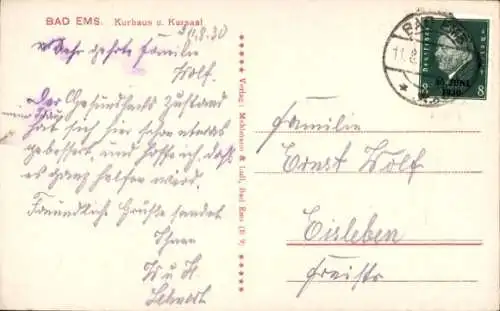 BAD EMS. Kurhaus u. Kursaal
10.8.30
Sehr geehrte Familie
Wolf.
Der Gesundheits Zustand
hat sich hier schon etwas
gebessert, und hoffe ich, daß
es ganz helfen wird.
Freundliche Grüße sendet
Ihnen
W u H
Verlag: Mehlmann & Ludl, Bad Ems (B 9)
BAD EMS
11.8.
Deutsches Reich
8 8
30. JUNI
1930
Familie
Ernst Wolf
Eisleben
Freistr